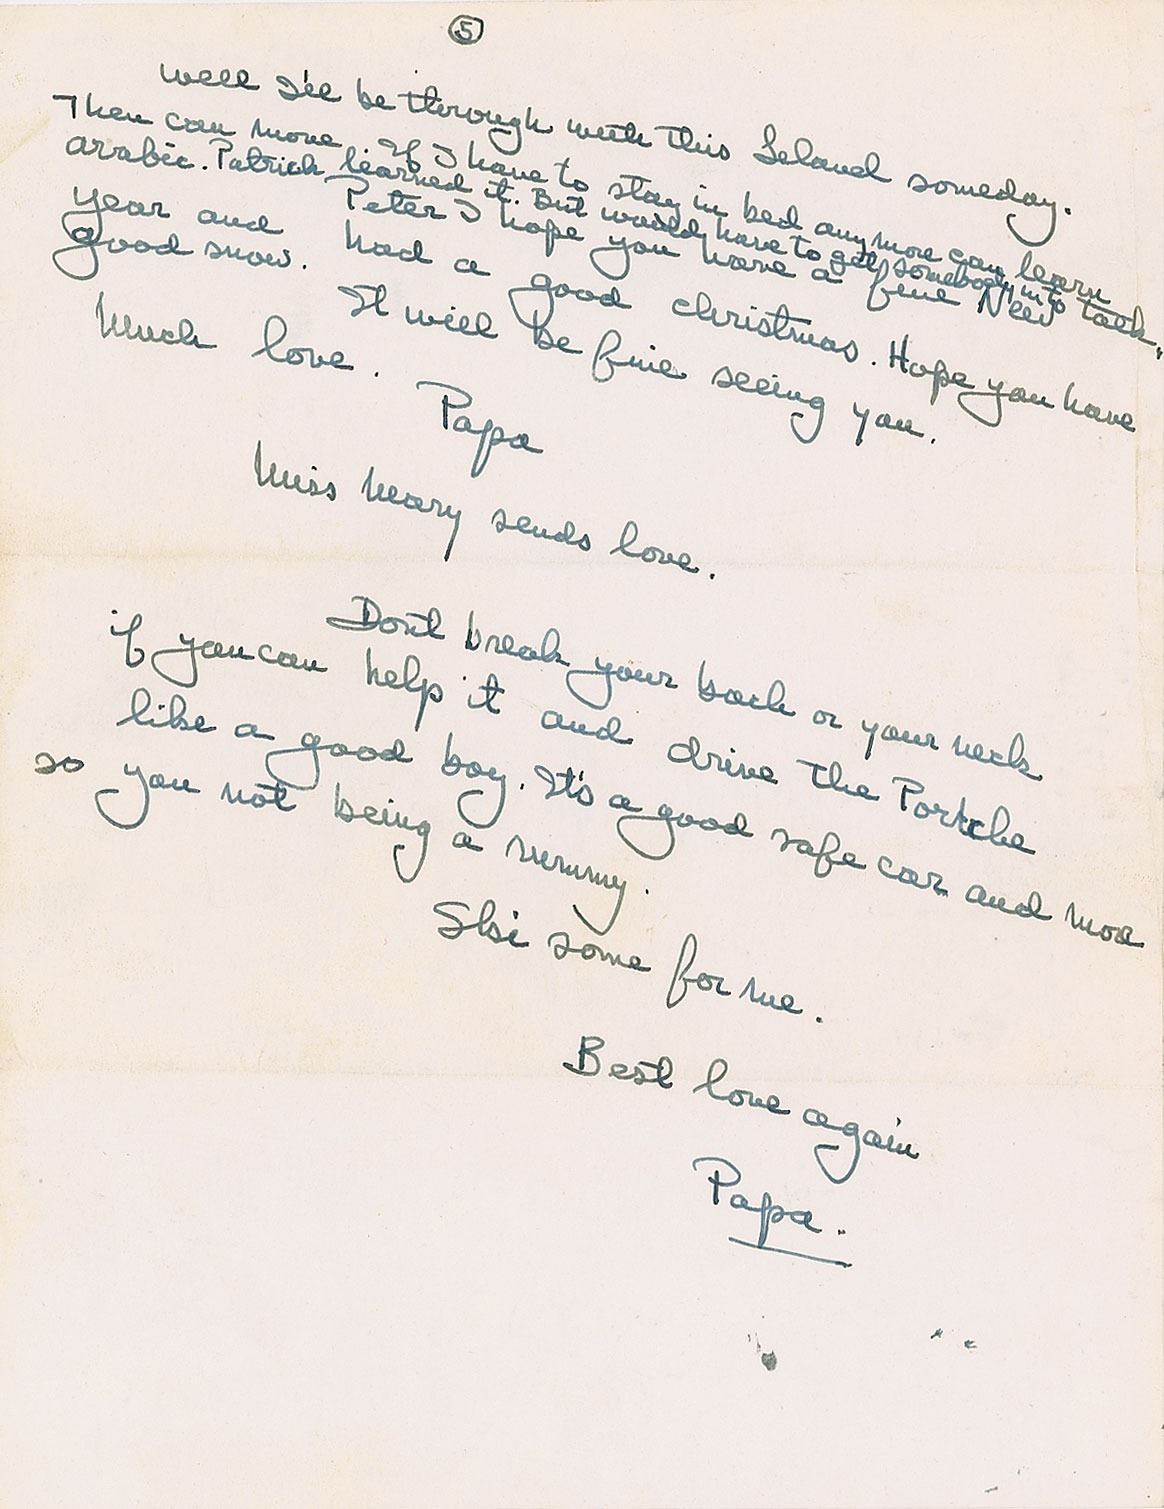 5
Well I'll be through with this Island someday.
Then can move. If I have to stay in bed anymore can learn
arabic. Patrick learned it. But would have to get somebody in to talk.
Peter I hope you have a fine New
year and had a good christmas. Hope you have
good snow.
It will be fine seeing you.
Much love.
Papa
Miss Mary sends love.
Dont break your back or your neck
if you can help it and drive the Portche
like a good boy. It's a good safe car and
so you not being a rummy.
Ski some for me.
Best love again
Papa.